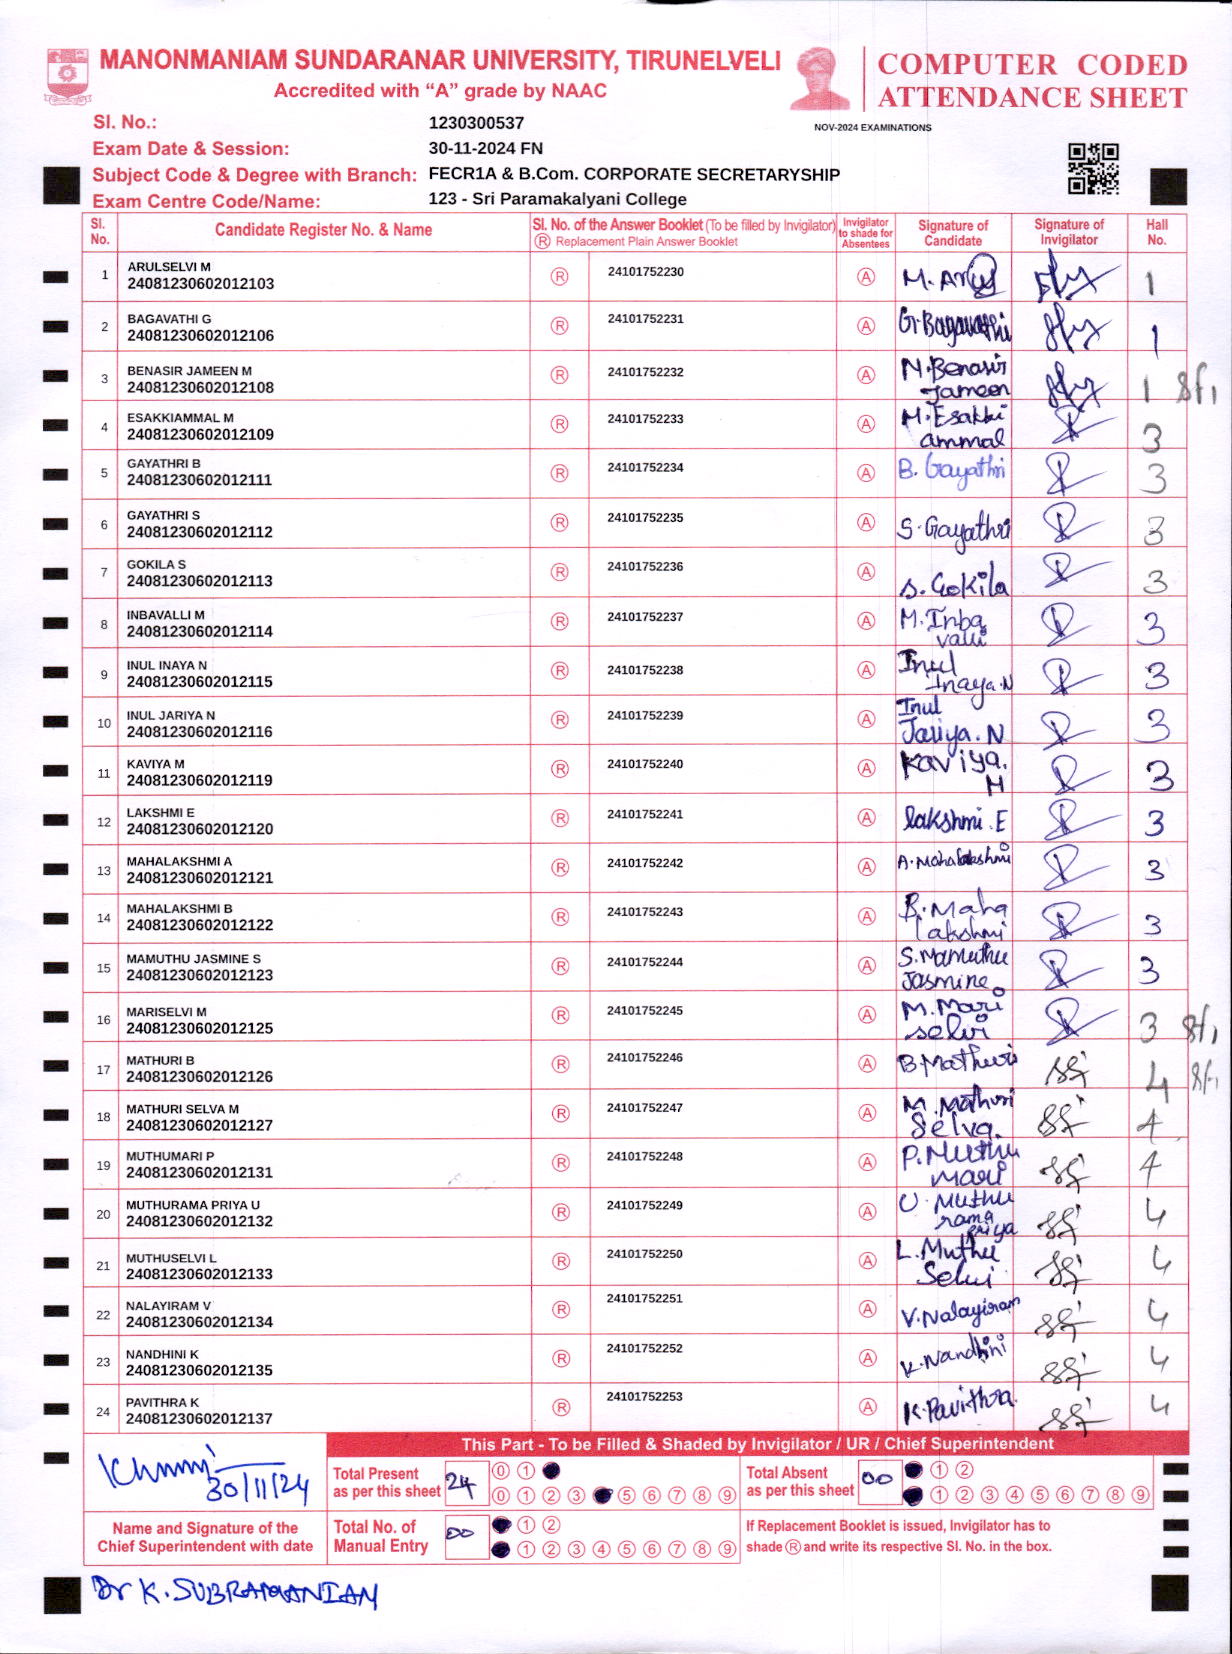 MANONMANIAM SUNDARANAR UNIVERSITY, TIRUNELVELI
Accredited with “A” grade by NAAC
COMPUTER CODED
ATTENDANCE SHEET
NOV-2024 EXAMINATIONS
Sl. No.: 1230300537
Exam Date & Session: 30-11-2024 FN
Subject Code & Degree with Branch: FECR1A & B.Com. CORPORATE SECRETARYSHIP
Exam Centre Code/Name: 123 - Sri Paramakalyani College
Sl. No. Candidate Register No. & Name Sl. No. of the Answer Booklet (To be filled by Invigilator) Ⓡ Replacement Plain Answer Booklet Invigilator to shade for Absentees Signature of Candidate Signature of Invigilator Hall No.
1 ARULSELVI M 24081230602012103 Ⓡ 24101752230 Ⓐ M. Arul 1
2 BAGAVATHI G 24081230602012106 Ⓡ 24101752231 Ⓐ G. Bagavathi 1
3 BENASIR JAMEEN M 24081230602012108 Ⓡ 24101752232 Ⓐ M. Benasir Jameen 1
4 ESAKKIAMMAL M 24081230602012109 Ⓡ 24101752233 Ⓐ M. Esakki ammal 3
5 GAYATHRI B 24081230602012111 Ⓡ 24101752234 Ⓐ B. Gayathri 3
6 GAYATHRI S 24081230602012112 Ⓡ 24101752235 Ⓐ S. Gayathri 3
7 GOKILA S 24081230602012113 Ⓡ 24101752236 Ⓐ S. Gokila 3
8 INBAVALLI M 24081230602012114 Ⓡ 24101752237 Ⓐ M. Inba valli 3
9 INUL INAYA N 24081230602012115 Ⓡ 24101752238 Ⓐ Inul Inaya. N 3
10 INUL JARIYA N 24081230602012116 Ⓡ 24101752239 Ⓐ Inul Jariya. N 3
11 KAVIYA M 24081230602012119 Ⓡ 24101752240 Ⓐ Kaviya. M 3
12 LAKSHMI E 24081230602012120 Ⓡ 24101752241 Ⓐ lakshmi. E 3
13 MAHALAKSHMI A 24081230602012121 Ⓡ 24101752242 Ⓐ A. Mahalakshmi 3
14 MAHALAKSHMI B 24081230602012122 Ⓡ 24101752243 Ⓐ B. Maha lakshmi 3
15 MAMUTHU JASMINE S 24081230602012123 Ⓡ 24101752244 Ⓐ S. Mamuthu Jasmine 3
16 MARISELVI M 24081230602012125 Ⓡ 24101752245 Ⓐ M. Mari selvi 3
17 MATHURI B 24081230602012126 Ⓡ 24101752246 Ⓐ B Mathuri 4
18 MATHURI SELVA M 24081230602012127 Ⓡ 24101752247 Ⓐ M. Mathuri Selva. 4
19 MUTHUMARI P 24081230602012131 Ⓡ 24101752248 Ⓐ P. Muthu mari 4
20 MUTHURAMA PRIYA U 24081230602012132 Ⓡ 24101752249 Ⓐ U. Muthu rama Priya 4
21 MUTHUSELVI L 24081230602012133 Ⓡ 24101752250 Ⓐ L. Muthu Selvi 4
22 NALAYIRAM V 24081230602012134 Ⓡ 24101752251 Ⓐ V. Nalayiram 4
23 NANDHINI K 24081230602012135 Ⓡ 24101752252 Ⓐ K. Nandhini 4
24 PAVITHRA K 24081230602012137 Ⓡ 24101752253 Ⓐ K. Pavithra 4
This Part - To be Filled & Shaded by Invigilator / UR / Chief Superintendent
30/11/24
Total Present as per this sheet 24
0 1
0 1 2 3 5 6 7 8 9
Total Absent as per this sheet 00
1 2
1 2 3 4 5 6 7 8 9
Name and Signature of the Chief Superintendent with date
Total No. of Manual Entry 00
1 2
1 2 3 4 5 6 7 8 9
If Replacement Booklet is issued, Invigilator has to
shade Ⓡ and write its respective Sl. No. in the box.
Dr K. SUBRAMANIAM